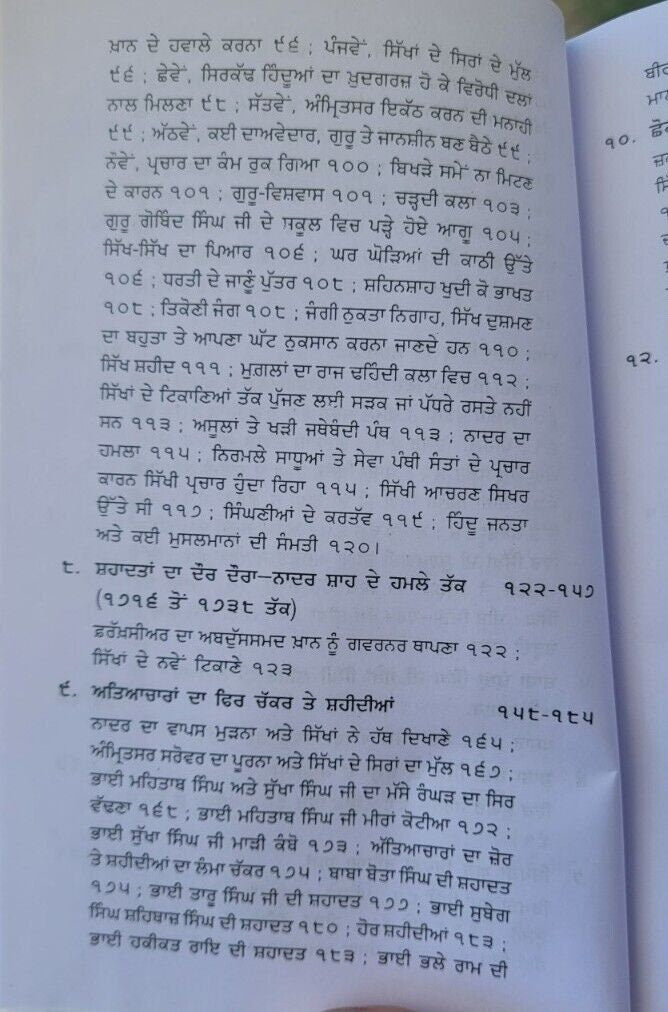 ਖ਼ਾਨ ਦੇ ਹਵਾਲੇ ਕਰਨਾ ੯੬ ; ਪੰਜਵੇਂ, ਸਿੱਖਾਂ ਦੇ ਸਿਰਾਂ ਦੇ ਮੁੱਲ
੯੬ ; ਛੇਵੇਂ, ਸਿਰਕੱਢ ਹਿੰਦੂਆਂ ਦਾ ਖ਼ੁਦਗਰਜ਼ ਹੋ ਕੇ ਵਿਰੋਧੀ ਦਲਾਂ
ਨਾਲ ਮਿਲਣਾ ੯੮ ; ਸੱਤਵੇਂ, ਅੰਮ੍ਰਿਤਸਰ ਇਕੱਠ ਕਰਨ ਦੀ ਮਨਾਹੀ
੯੯ ; ਅੱਠਵੇਂ, ਕਈ ਦਾਅਵੇਦਾਰ, ਗੁਰੂ ਤੇ ਜਾਨਸ਼ੀਨ ਬਣ ਬੈਠੇ ੯੯ ;
ਨੌਵੇਂ, ਪ੍ਰਚਾਰ ਦਾ ਕੰਮ ਰੁਕ ਗਿਆ ੧੦੦ ; ਬਿਖੜੇ ਸਮੇਂ ਨਾ ਮਿਟਣ
ਦੇ ਕਾਰਨ ੧੦੧ ; ਗੁਰੂ-ਵਿਸ਼ਵਾਸ ੧੦੧ ; ਚੜ੍ਹਦੀ ਕਲਾ ੧੦੩ ;
ਗੁਰੂ ਗੋਬਿੰਦ ਸਿੰਘ ਜੀ ਦੇ ਸਕੂਲ ਵਿਚ ਪੜ੍ਹੇ ਹੋਏ ਆਗੂ ੧੦੫ ;
ਸਿੱਖ-ਸਿੱਖ ਦਾ ਪਿਆਰ ੧੦੬ ; ਘਰ ਘੋੜਿਆਂ ਦੀ ਕਾਠੀ ਉੱਤੇ
੧੦੬ ; ਧਰਤੀ ਦੇ ਜਾਨੂੰ ਪੁੱਤਰ ੧੦੮ ; ਸਹਿਨਸ਼ਾਹ ਖੁਦੀ ਕੋ ਭਾਖਤ
੧੦੮ ; ਤਿਕੋਣੀ ਜੰਗ ੧੦੮ ; ਜੰਗੀ ਨੁਕਤਾ ਨਿਗਾਹ, ਸਿੱਖ ਦੁਸ਼ਮਣ
ਦਾ ਬਹੁਤਾ ਤੇ ਆਪਣਾ ਘੱਟ ਨੁਕਸਾਨ ਕਰਨਾ ਜਾਣਦੇ ਹਨ ੧੧੦ ;
ਸਿੱਖ ਸ਼ਹੀਦ ੧੧੧ ; ਮੁਗ਼ਲਾਂ ਦਾ ਰਾਜ ਢਹਿੰਦੀ ਕਲਾ ਵਿਚ ੧੧੨ ;
ਸਿੱਖਾਂ ਦੇ ਟਿਕਾਣਿਆਂ ਤੱਕ ਪੁੱਜਣ ਲਈ ਸੜਕ ਜਾਂ ਪੱਧਰੇ ਰਸਤੇ ਨਹੀਂ
ਸਨ ੧੧੩ ; ਅਸੂਲਾਂ ਤੇ ਖੜੀ ਜਥੇਬੰਦੀ ਪੰਥ ੧੧੩ ; ਨਾਦਰ ਦਾ
ਹਮਲਾ ੧੧੫ ; ਨਿਰਮਲੇ ਸਾਧੂਆਂ ਤੇ ਸੇਵਾ ਪੰਥੀ ਸੰਤਾਂ ਦੇ ਪ੍ਰਚਾਰ
ਕਾਰਨ ਸਿੱਖੀ ਪ੍ਰਚਾਰ ਹੁੰਦਾ ਰਿਹਾ ੧੧੫ ; ਸਿੱਖੀ ਆਚਰਣ ਸਿਖਰ
ਉੱਤੇ ਸੀ ੧੧੭ ; ਸਿੰਘਣੀਆਂ ਦੇ ਕਰਤੱਵ ੧੧੯ ; ਹਿੰਦੂ ਜਨਤਾ
ਅਤੇ ਕਈ ਮੁਸਲਮਾਨਾਂ ਦੀ ਸੰਮਤੀ ੧੨੦।
੮. ਸ਼ਹਾਦਤਾਂ ਦਾ ਦੌਰ ਦੌਰਾ—ਨਾਦਰ ਸ਼ਾਹ ਦੇ ਹਮਲੇ ਤੱਕ ੧੨੨-੧੫੭
(੧੭੧੬ ਤੋਂ ੧੭੩੮ ਤੱਕ)
ਫ਼ਰੱਖ਼ਸੀਅਰ ਦਾ ਅਬਦੁੱਸਸਮਦ ਖ਼ਾਨ ਨੂੰ ਗਵਰਨਰ ਥਾਪਣਾ ੧੨੨ ;
ਸਿੱਖਾਂ ਦੇ ਨਵੇਂ ਟਿਕਾਣੇ ੧੨੩
੯. ਅਤਿਆਚਾਰਾਂ ਦਾ ਫਿਰ ਚੱਕਰ ਤੇ ਸ਼ਹੀਦੀਆਂ ੧੫੮-੧੮੫
ਨਾਦਰ ਦਾ ਵਾਪਸ ਮੁੜਨਾ ਅਤੇ ਸਿੱਖਾਂ ਨੇ ਹੱਥ ਦਿਖਾਣੇ ੧੬੫ ;
ਅੰਮ੍ਰਿਤਸਰ ਸਰੋਵਰ ਦਾ ਪੂਰਨਾ ਅਤੇ ਸਿੱਖਾਂ ਦੇ ਸਿਰਾਂ ਦਾ ਮੁੱਲ ੧੬੭ ;
ਭਾਈ ਮਹਿਤਾਬ ਸਿੰਘ ਅਤੇ ਸੁੱਖਾ ਸਿੰਘ ਜੀ ਦਾ ਮੱਸੇ ਰੰਘੜ ਦਾ ਸਿਰ
ਵੱਢਣਾ ੧੬੮ ; ਭਾਈ ਮਹਿਤਾਬ ਸਿੰਘ ਜੀ ਮੀਰਾਂ ਕੋਟੀਆ ੧੭੨ ;
ਭਾਈ ਸੁੱਖਾ ਸਿੰਘ ਜੀ ਮਾੜੀ ਕੰਬੋ ੧੭੩ ; ਅੱਤਿਆਚਾਰਾਂ ਦਾ ਜ਼ੋਰ
ਤੇ ਸ਼ਹੀਦੀਆਂ ਦਾ ਲੰਮਾ ਚੱਕਰ ੧੭੫ ; ਬਾਬਾ ਬੋਤਾ ਸਿੰਘ ਦੀ ਸ਼ਹਾਦਤ
੧੭੫ ; ਭਾਈ ਤਾਰੂ ਸਿੰਘ ਜੀ ਦੀ ਸ਼ਹਾਦਤ ੧੭੭ ; ਭਾਈ ਸੁਬੇਗ
ਸਿੰਘ ਸ਼ਹਿਬਾਜ਼ ਸਿੰਘ ਦੀ ਸ਼ਹਾਦਤ ੧੮੦ ; ਹੋਰ ਸ਼ਹੀਦੀਆਂ ੧੮੩ ;
ਭਾਈ ਹਕੀਕਤ ਰਾਇ ਦੀ ਸ਼ਹਾਦਤ ੧੮੩ ; ਭਾਈ ਭਲੇ ਰਾਮ ਦੀ
੧੦.
੧੨.